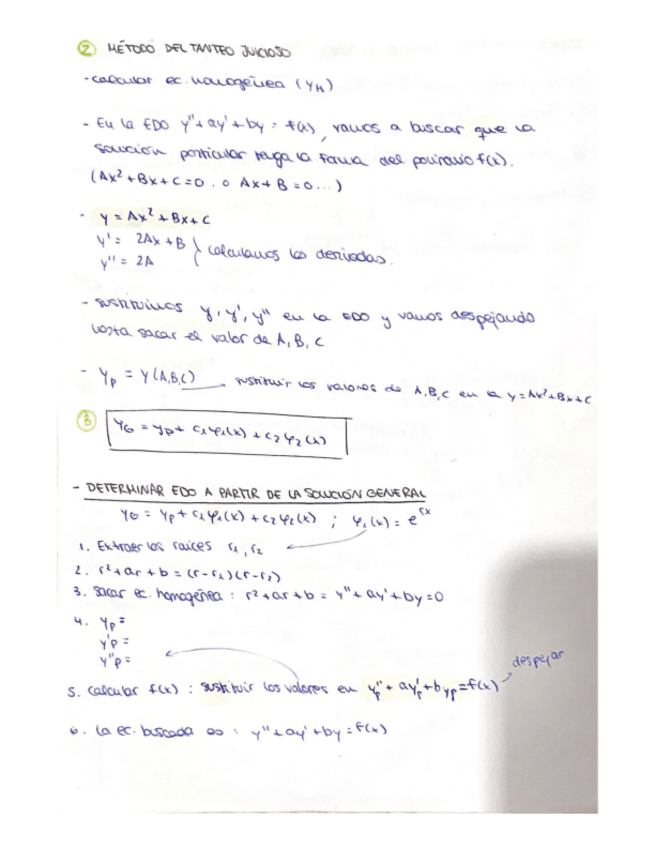 ② MÉTODO DEL TANTEO JUICIOSO
- calcular ec. homogénea (yH)
- En la EDO y'' + ay' + by = f(x), vamos a buscar que la
solución particular tenga la forma del polinomio f(x).
(Ax² + Bx + C = 0 . o Ax + B = 0 ...)
- y = Ax² + Bx + C
y' = 2Ax + B } calculamos las derivadas.
y'' = 2A
- sustituimos y, y', y'' en la EDO y vamos despejando
hasta sacar el valor de A, B, C
- yp = y(A,B,C) sustituir los valores de A,B,C en la y = Ax² + Bx + C
③ yG = yp + c₁φ₁(x) + c₂φ₂(x)
- DETERMINAR EDO A PARTIR DE LA SOLUCIÓN GENERAL
yG = yp + c₁φ₁(x) + c₂φ₂(x) ; φ₁(x) = e^rx
1. Extraer las raíces r₁, r₂
2. r² + ar + b = (r - r₁)(r - r₂)
3. Sacar ec. homogénea : r² + ar + b = y'' + ay' + by = 0
4. yp =
y'p =
y''p =
despejar
5. calcular f(x) : sustituir los valores en y''p + ay'p + byp = f(x)
6. la ec. buscada es : y'' + ay' + by = f(x)